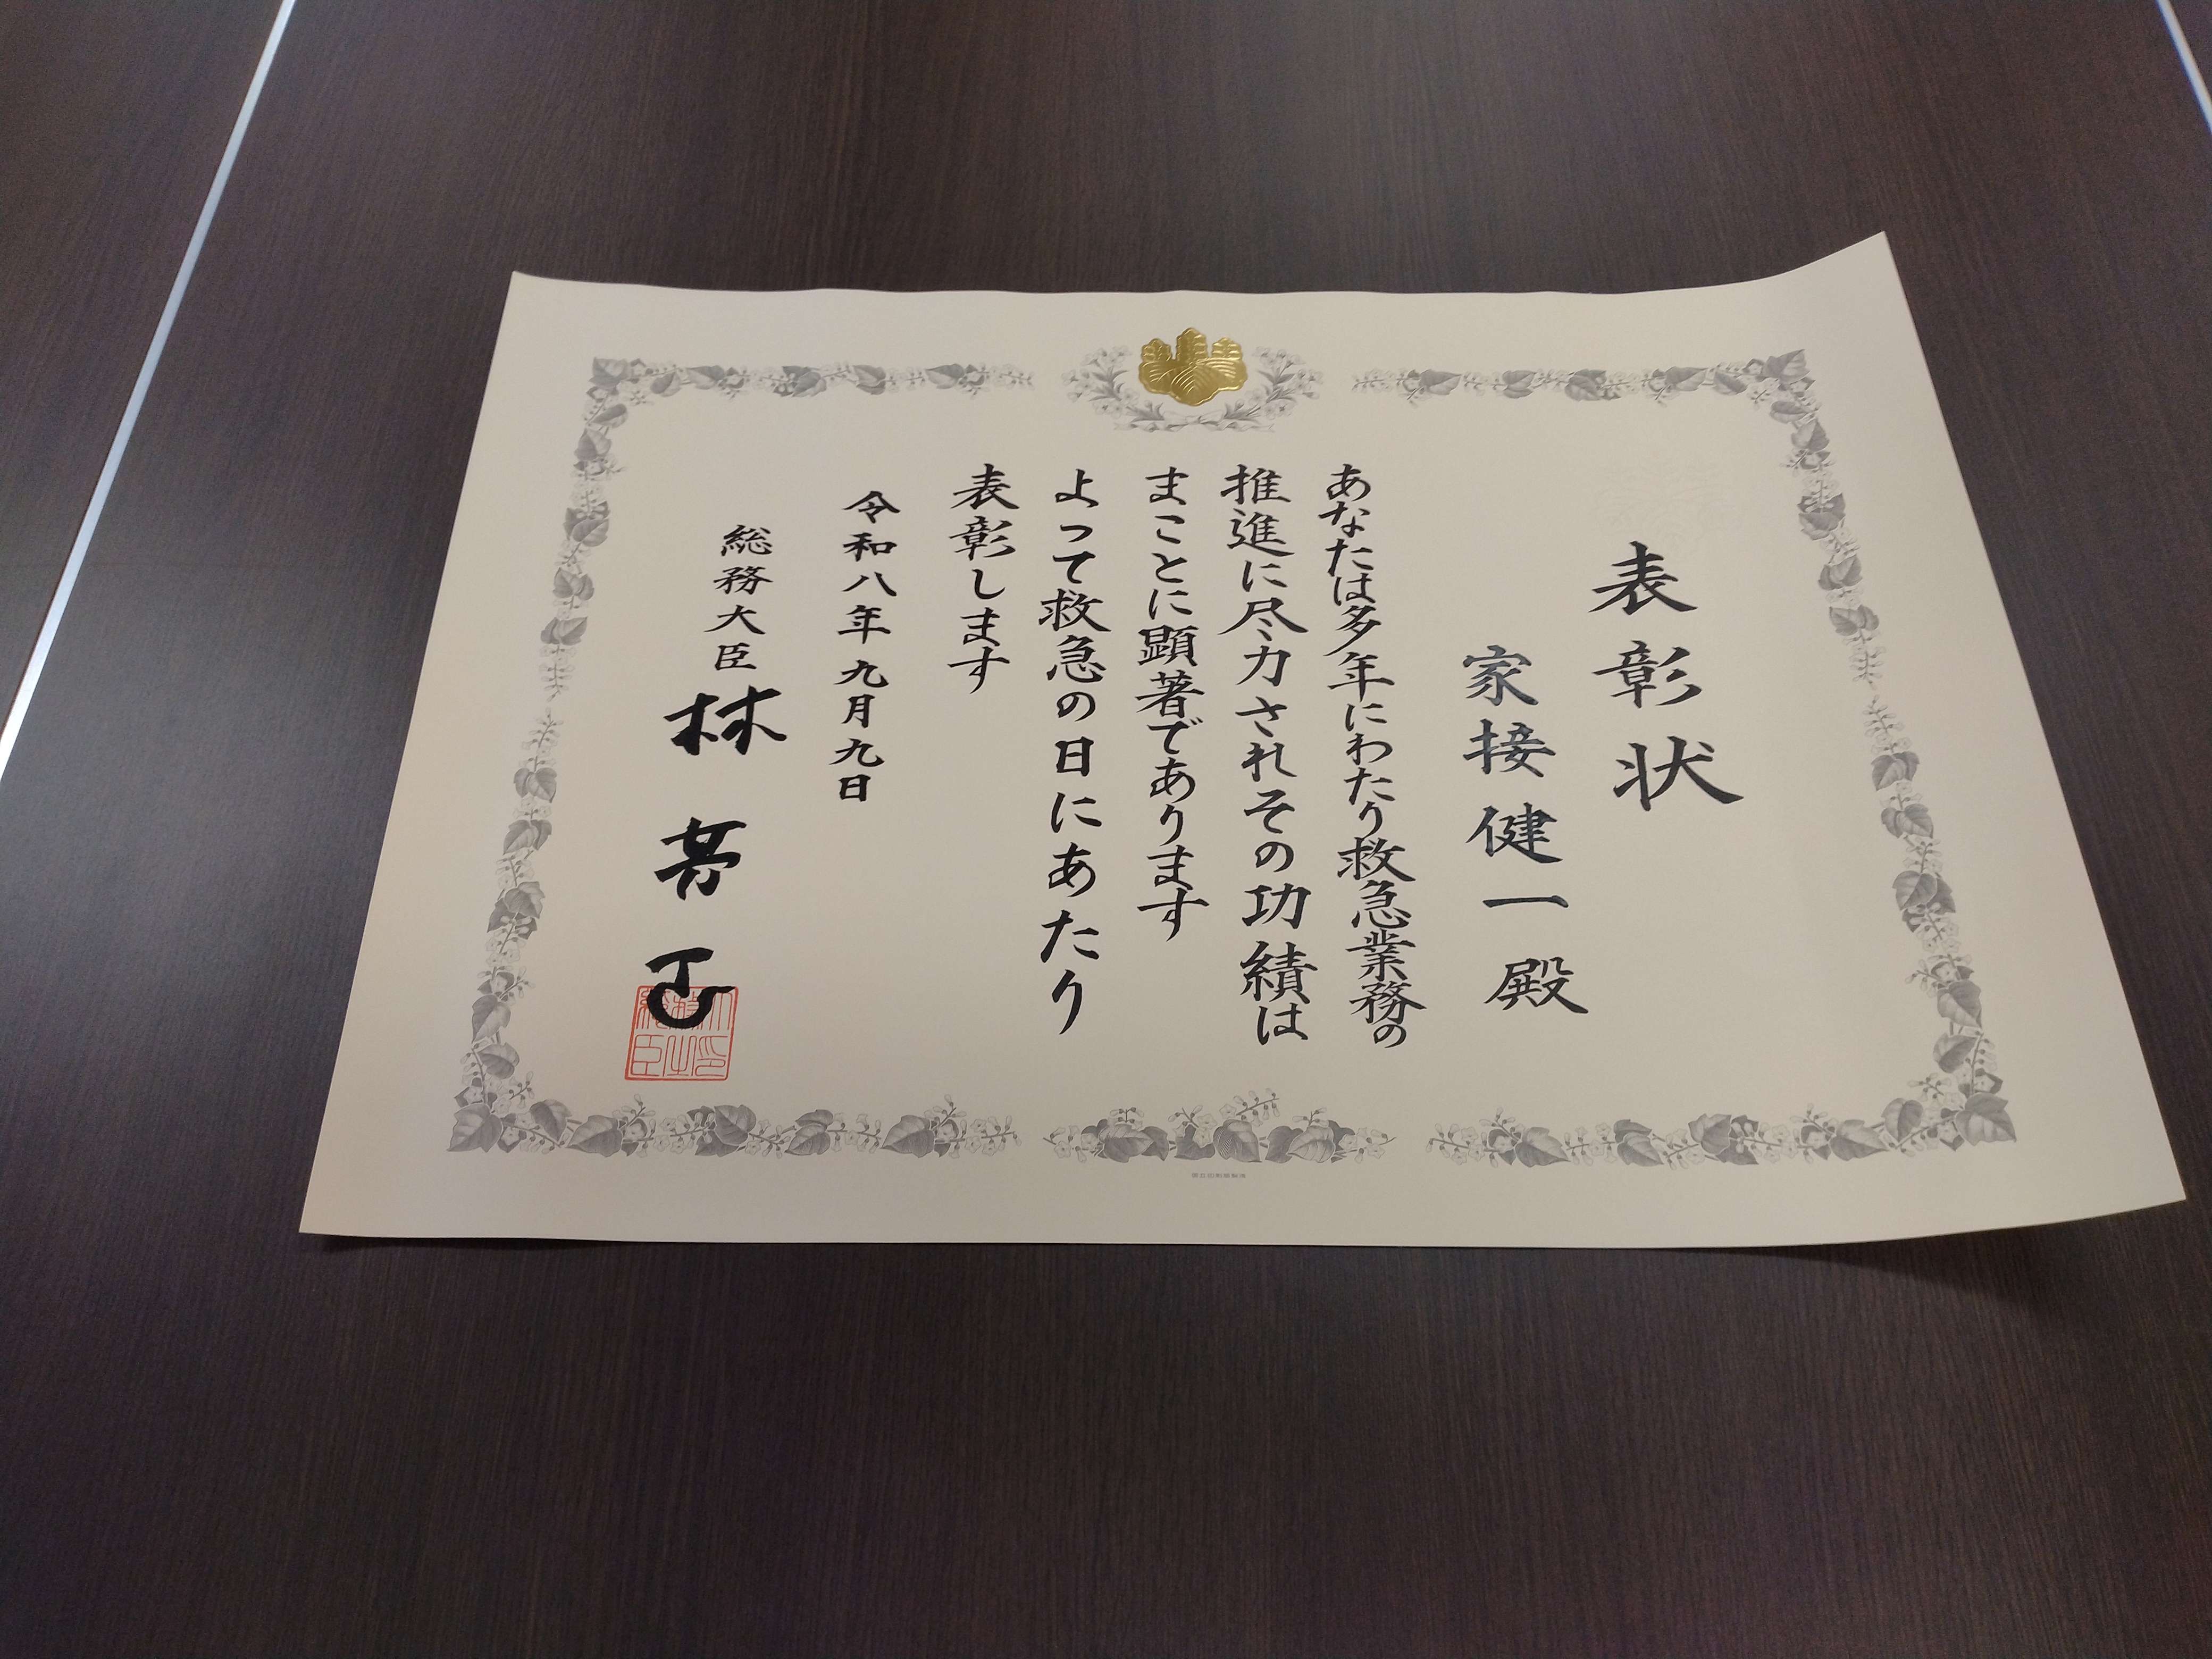 表彰状
家接健一殿
あなたは多年にわたり救急業務の
推進に尽力されその功績は
まことに顕著であります
よって救急の日にあたり
表彰します
令和八年九月九日
総務大臣
林芳正